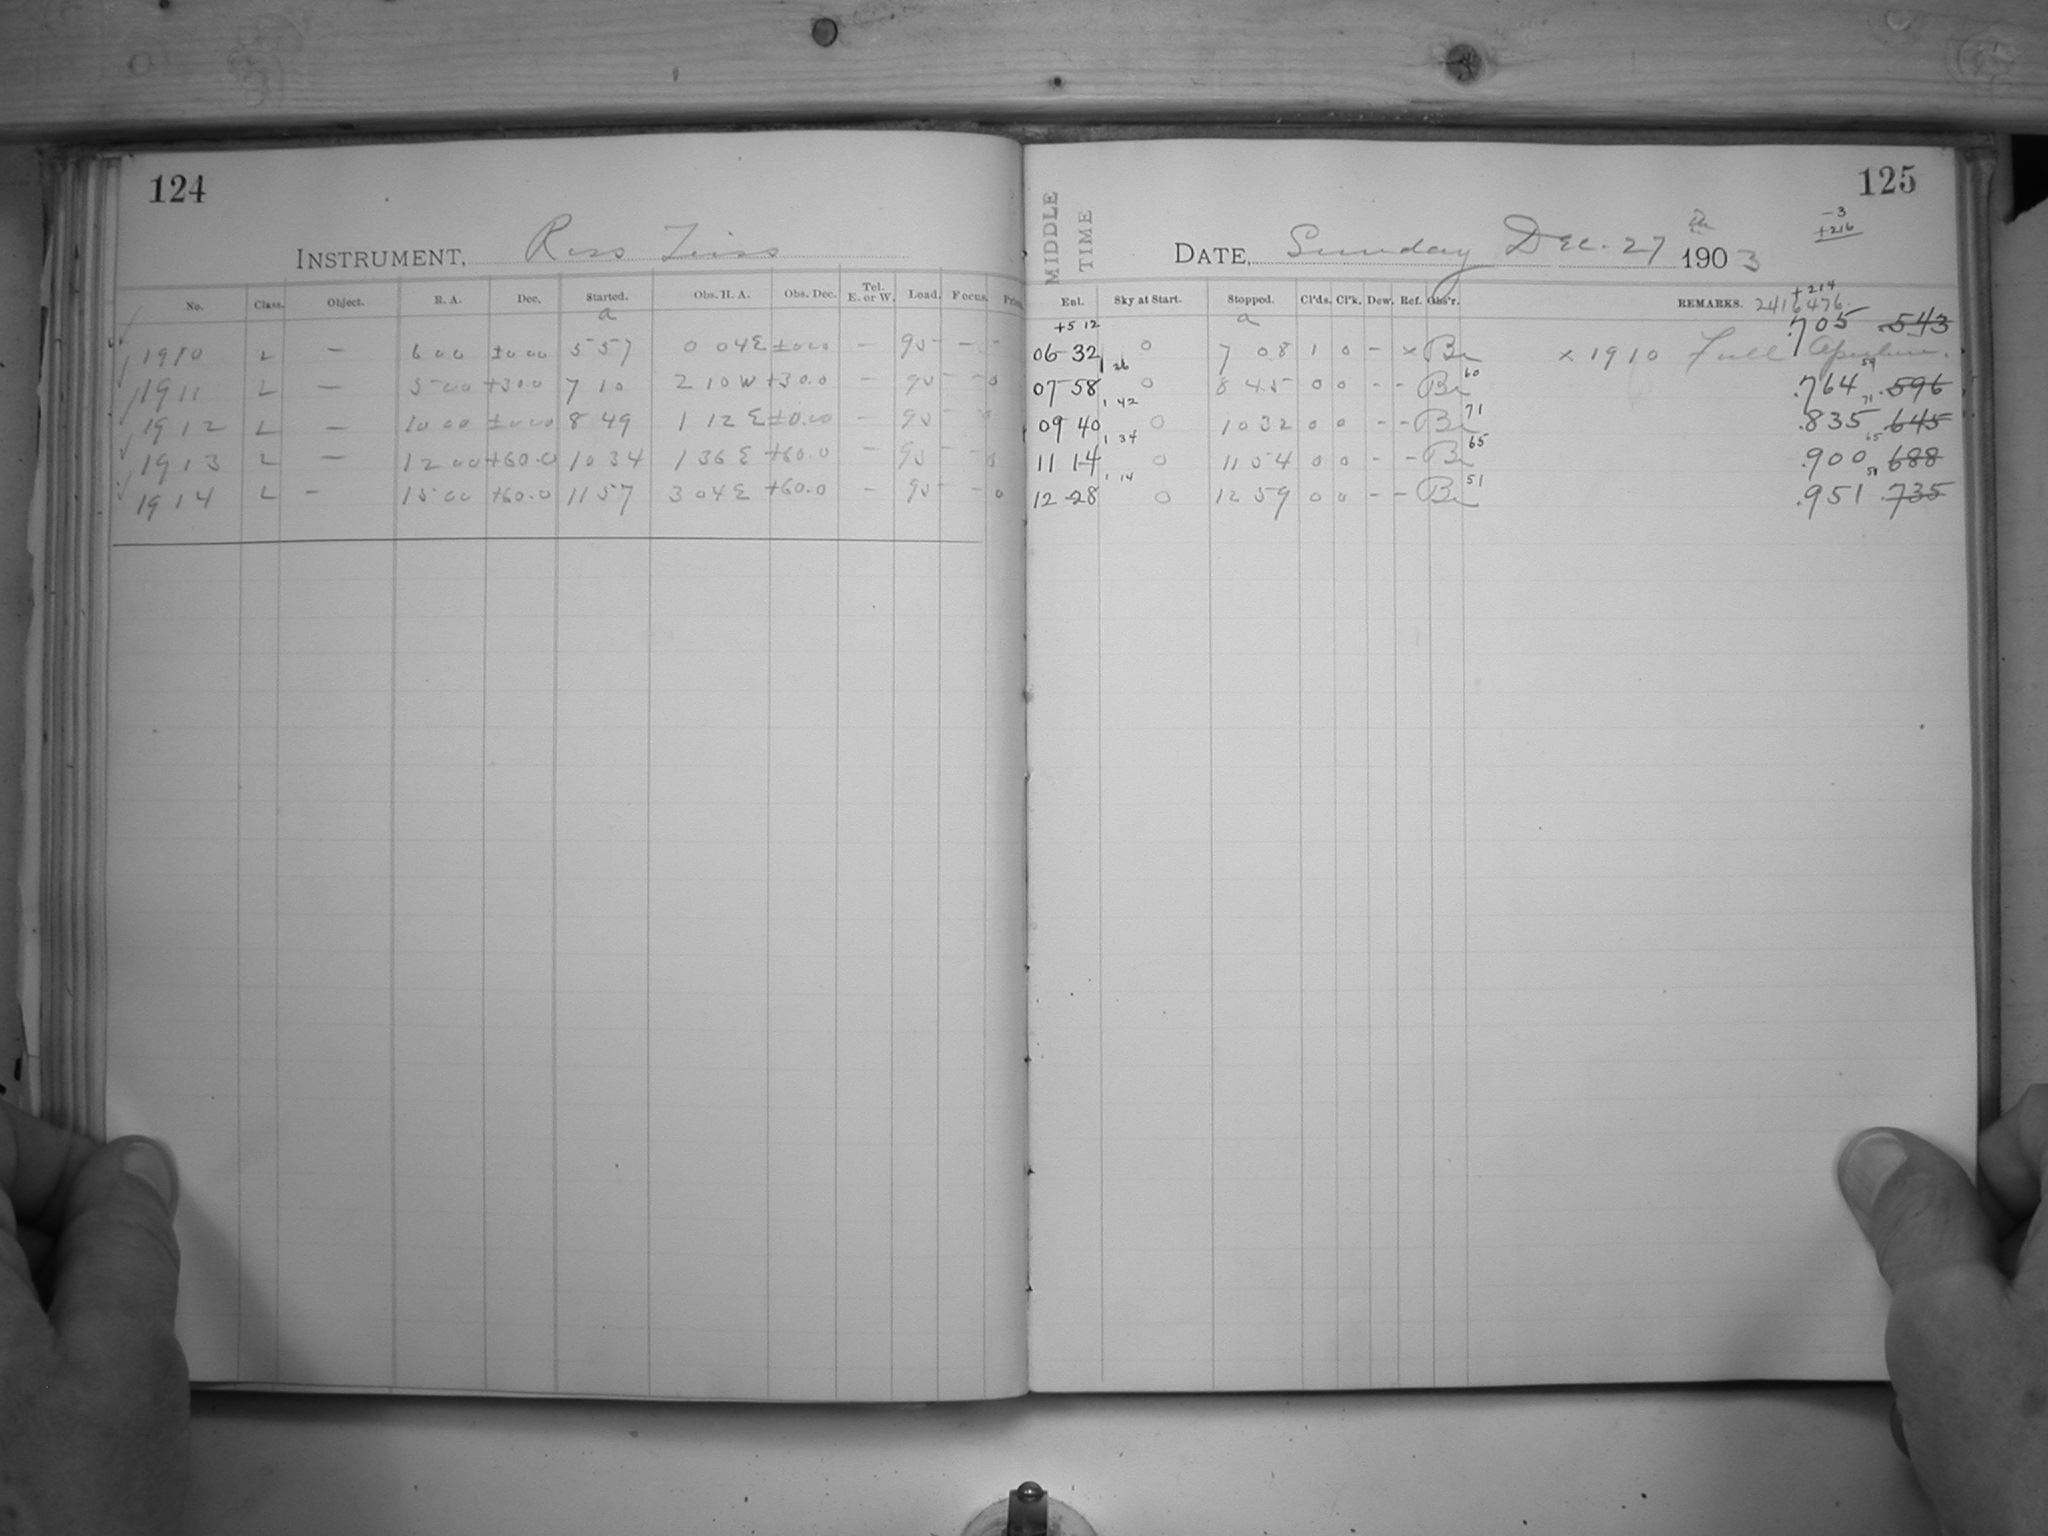 124
INSTRUMENT, Ross Zeiss
No. Class. Object. R. A. Dec. Started. Obs. H. A. Obs. Dec. Tel. E. or W. Load. Focus.
a
1910 L — 6 00 ±0 00 5 57 0 04 E ±0.0 — 95 — —
1911 L — 5 00 +30.0 7 10 2 10 W +30.0 — 95 — 0
1912 L — 10 00 ±0 00 8 49 1 12 E ±0.00 — 95
1913 L — 12 00 +60.0 10 34 1 36 E +60.0 — 95 — 0
1914 L — 15 00 +60.0 11 57 3 04 E +60.0 — 95 — 0
125
MIDDLE TIME
-3
+216
DATE, Sunday Dec. 27 th 1903
+214
Ent. Sky at Start. Stopped. Cl'ds. Cl'k. Dew. Ref. Obs'r. REMARKS. 2416476.
+5 12 a
06-32 0 7 08 1 0 - x Br x 1910 Full Aperture. .705 .543
1 26 60 59
07-58 0 8 45 0 0 - - Br .764 .596
1 42 71 71
09 40 0 10 32 0 0 - - Br .835 .645
1 34 65 65
11 14 0 11 54 0 0 - - Br .900 688
1 14 51 51
12-28 0 12 59 0 0 - - Br .951 .735